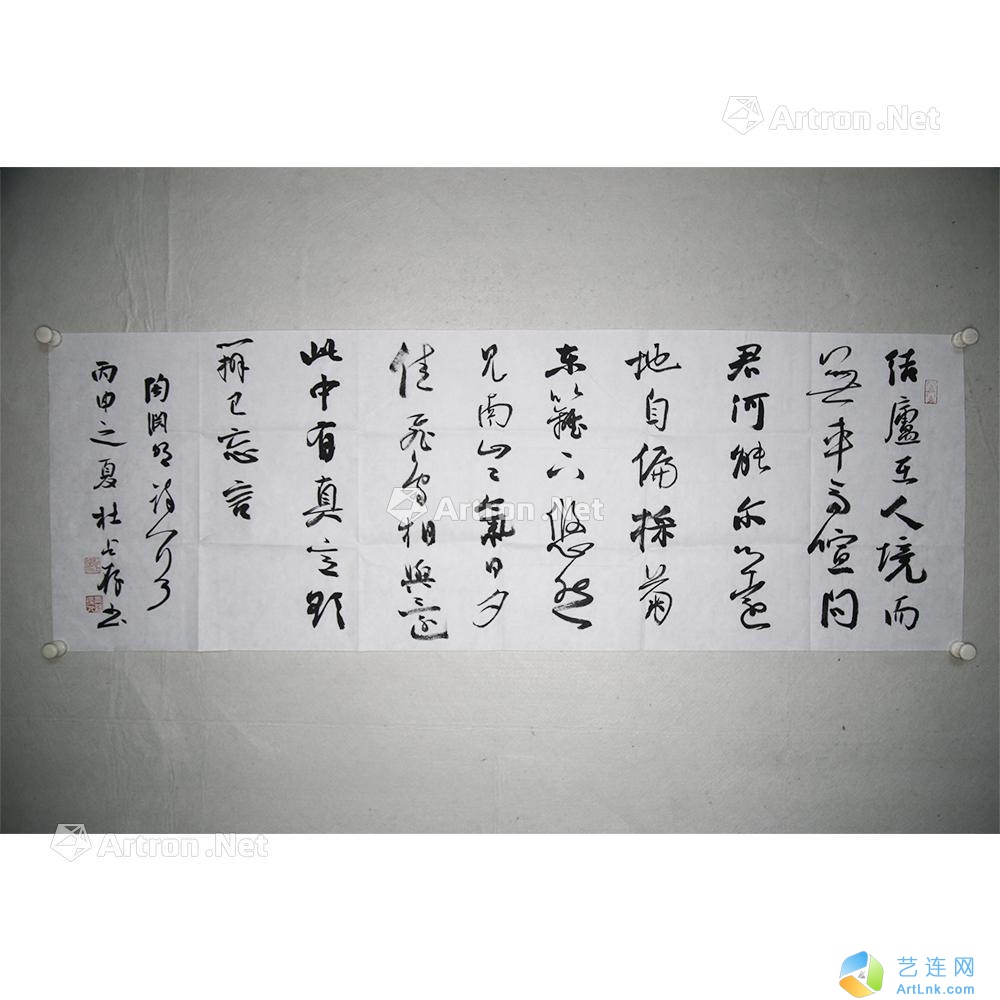 结廬在人境而
無車馬喧问
君何能尔心遠
地自偏採菊
东籬下悠然
见南山〻氣日夕
佳飛鳥相與還
此中有真意欲
辨已忘言
陶渊明诗一首
丙申之夏杜占存书
Artron.Net
Artron.Net
Artron.Net
艺连网
ArtLnk.com